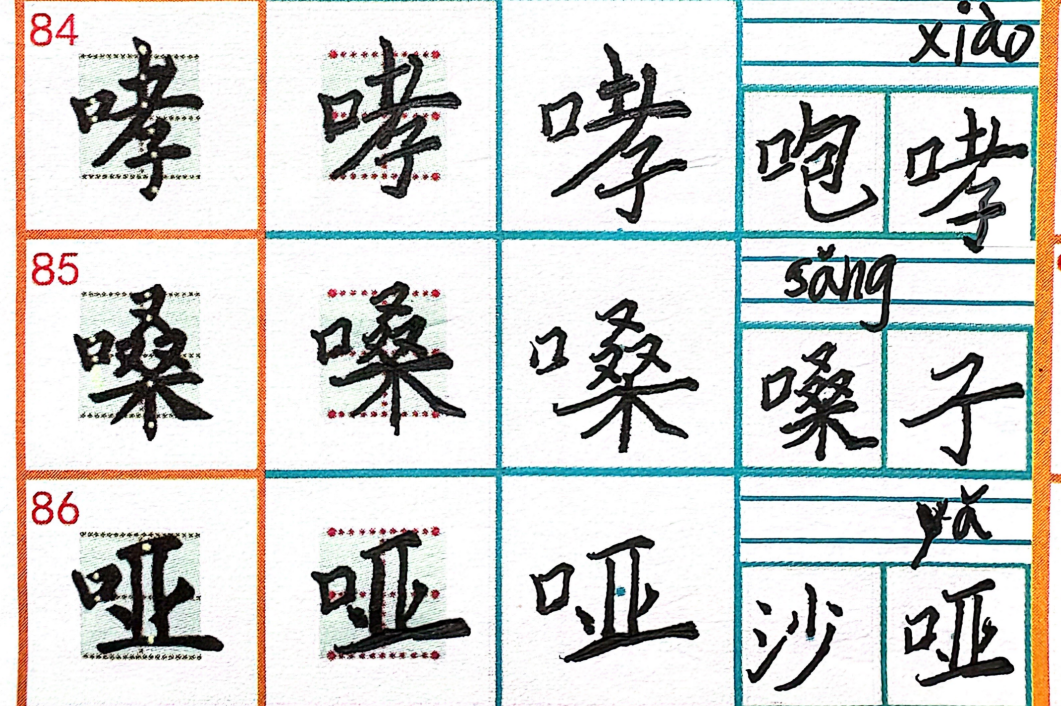 84 哮 哮 哮 xiào
咆 哮
85 嗓 嗓 嗓 sǎng
嗓 子
86 哑 哑 哑 yǎ
沙 哑